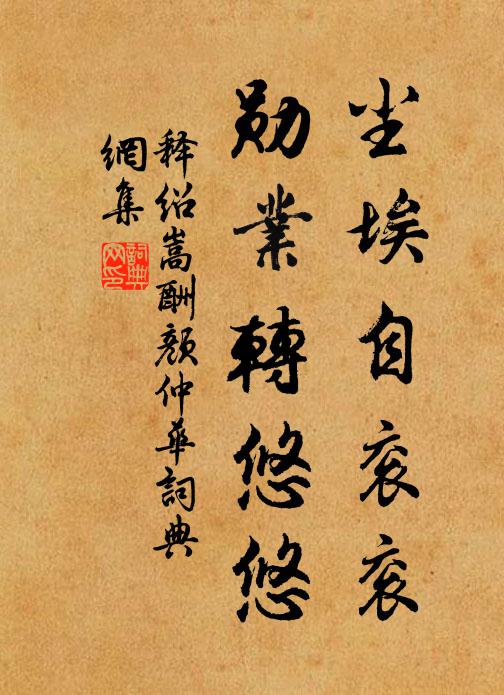 尘埃自衮衮
勋業轉悠悠
释绍嵩酬颜仲華詞典
網集
詞典
网印